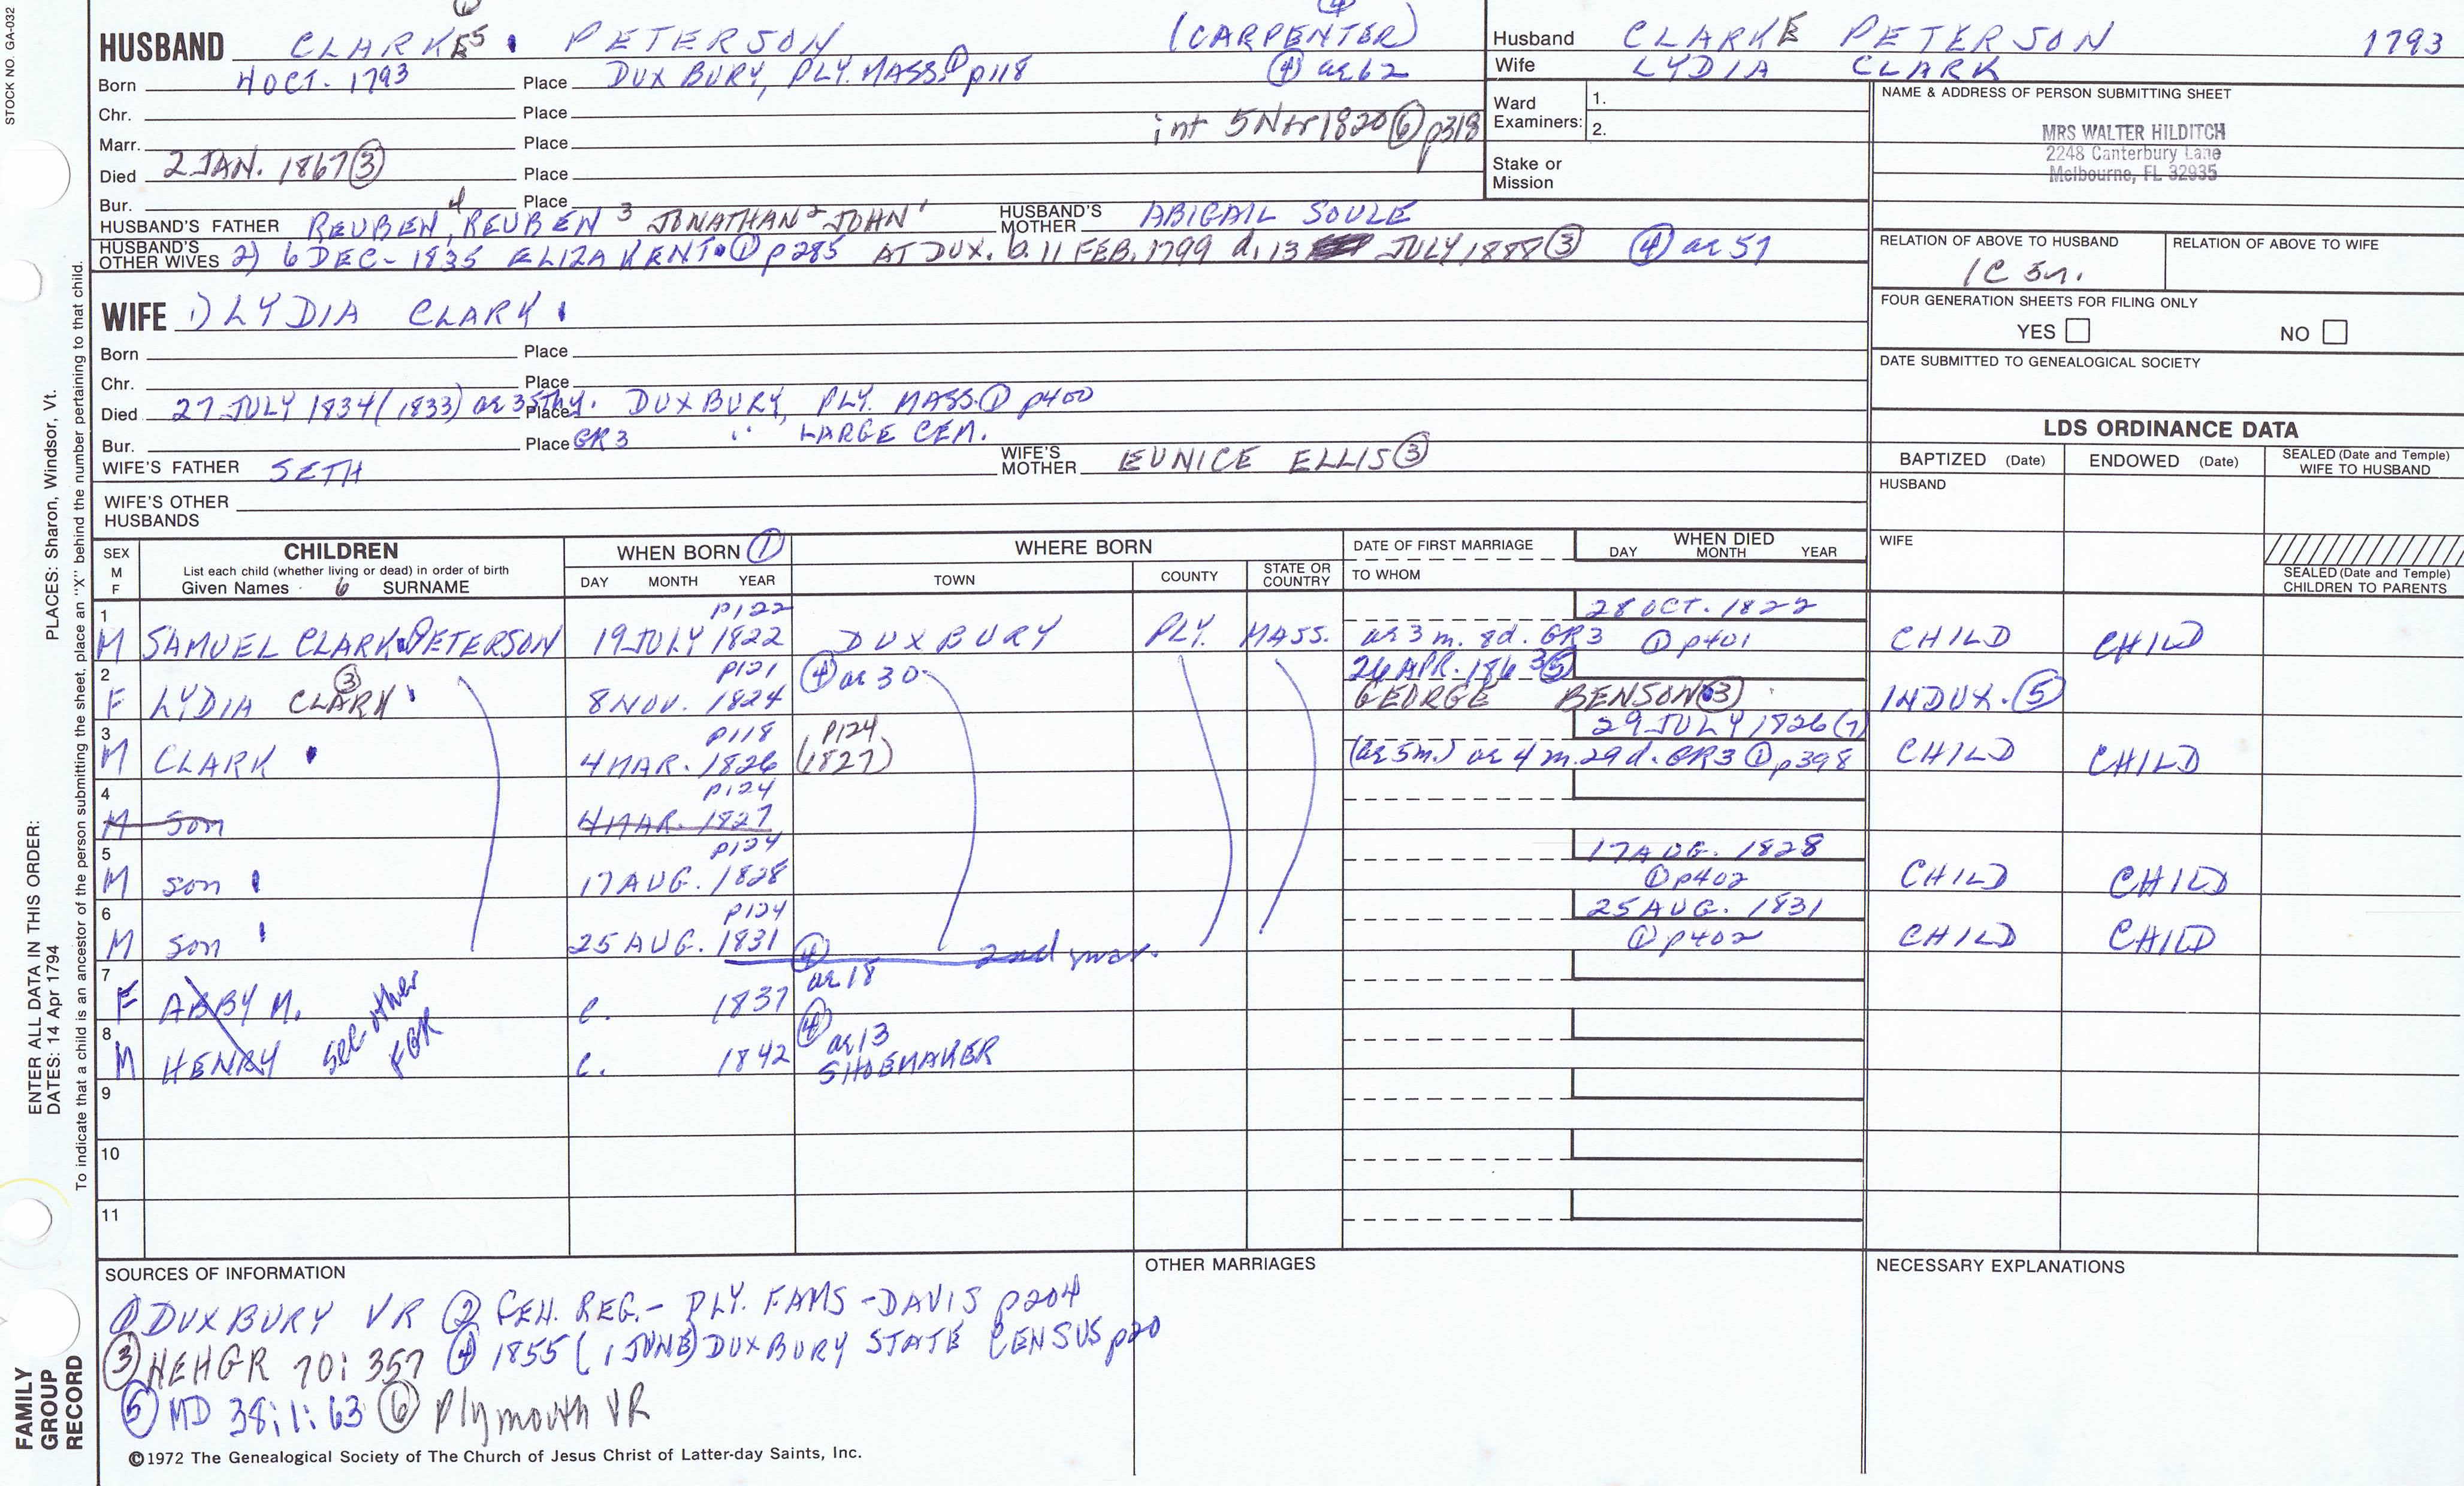 STOCK NO. GA-032
HUSBAND CLARKE5 PETERSON (CARPENTER) ④
Born 4 OCT. 1793 Place DUXBURY, PLY. MASS. ① p118 ④ ae 62
Chr. Place
Marr. Place int 5 Nov 1820 ⑥ p318
Died 2 JAN. 1867 ③ Place
Bur. Place
HUSBAND'S FATHER REUBEN 4, REUBEN 3 JONATHAN 2 JOHN 1 HUSBAND'S MOTHER ABIGAIL SOULE
HUSBAND'S OTHER WIVES 2) 6 DEC - 1835 ELIZA KENT ① p285 AT DUX. b. 11 FEB. 1799 d. 13 JULY 1888 ③ ④ ae 57
Husband CLARKE PETERSON 1793
Wife LYDIA CLARK
Ward Examiners: 1.
2.
Stake or Mission
NAME & ADDRESS OF PERSON SUBMITTING SHEET
MRS WALTER HILDITCH
2248 Canterbury Lane
Melbourne, FL 32935
RELATION OF ABOVE TO HUSBAND RELATION OF ABOVE TO WIFE
1C 5r.
FOUR GENERATION SHEETS FOR FILING ONLY
YES NO
DATE SUBMITTED TO GENEALOGICAL SOCIETY
WIFE 1) LYDIA CLARK
Born Place
Chr. Place
Died 27 JULY 1834 (1833) ae 35thy. Place DUXBURY, PLY. MASS. ① p400
Bur. Place GR3 " LARGE CEM.
WIFE'S FATHER SETH WIFE'S MOTHER EUNICE ELLIS ③
WIFE'S OTHER HUSBANDS
LDS ORDINANCE DATA
BAPTIZED (Date) ENDOWED (Date) SEALED (Date and Temple) WIFE TO HUSBAND
HUSBAND
WIFE
SEALED (Date and Temple) CHILDREN TO PARENTS
SEX M F
CHILDREN
List each child (whether living or dead) in order of birth
Given Names 6 SURNAME
WHEN BORN ①
DAY MONTH YEAR
WHERE BORN
TOWN COUNTY STATE OR COUNTRY
DATE OF FIRST MARRIAGE
TO WHOM
WHEN DIED
DAY MONTH YEAR
1 p122 28 OCT. 1822
M SAMUEL CLARK PETERSON 19 JULY 1822 DUXBURY PLY. MASS. ae 3 m. 8d. GR3 ① p401 CHILD CHILD
2 ③ p121 ④ ae 30 26 APR. 1863 ⑤
F LYDIA CLARK 8 NOV. 1824 GEORGE BENSON ③ IN DUX. ⑤
3 p118 p124 29 JULY 1826 (7)
M CLARK 4 MAR. 1826 (1827) (ae 5m.) ae 4 m. 29 d. GR3 ① p398 CHILD CHILD
4 p124
M son 4 MAR. 1827
5 p124 17 AUG. 1828
M son 17 AUG. 1828 ① p402 CHILD CHILD
6 p124 25 AUG. 1831
M son 25 AUG. 1831 ① p402 CHILD CHILD
2nd mar.
7 ④ ae 18
F ABBY M. c. 1837
see other FGR
8 ④ ae 13
M HENRY c. 1842 SHOEMAKER
9
10
11
SOURCES OF INFORMATION
① DUXBURY VR ② GEN. REG. - PLY. FAMS - DAVIS p204
③ NEHGR 70: 357 ④ 1855 (1 JUNE) DUXBURY STATE CENSUS p20
⑤ MD 38:1:63 ⑥ Plymouth VR
OTHER MARRIAGES
NECESSARY EXPLANATIONS
©1972 The Genealogical Society of The Church of Jesus Christ of Latter-day Saints, Inc.
FAMILY GROUP RECORD
ENTER ALL DATA IN THIS ORDER:
DATES: 14 Apr 1794
PLACES: Sharon, Windsor, Vt.
To indicate that a child is an ancestor of the person submitting the sheet, place an "X" behind the number pertaining to that child.